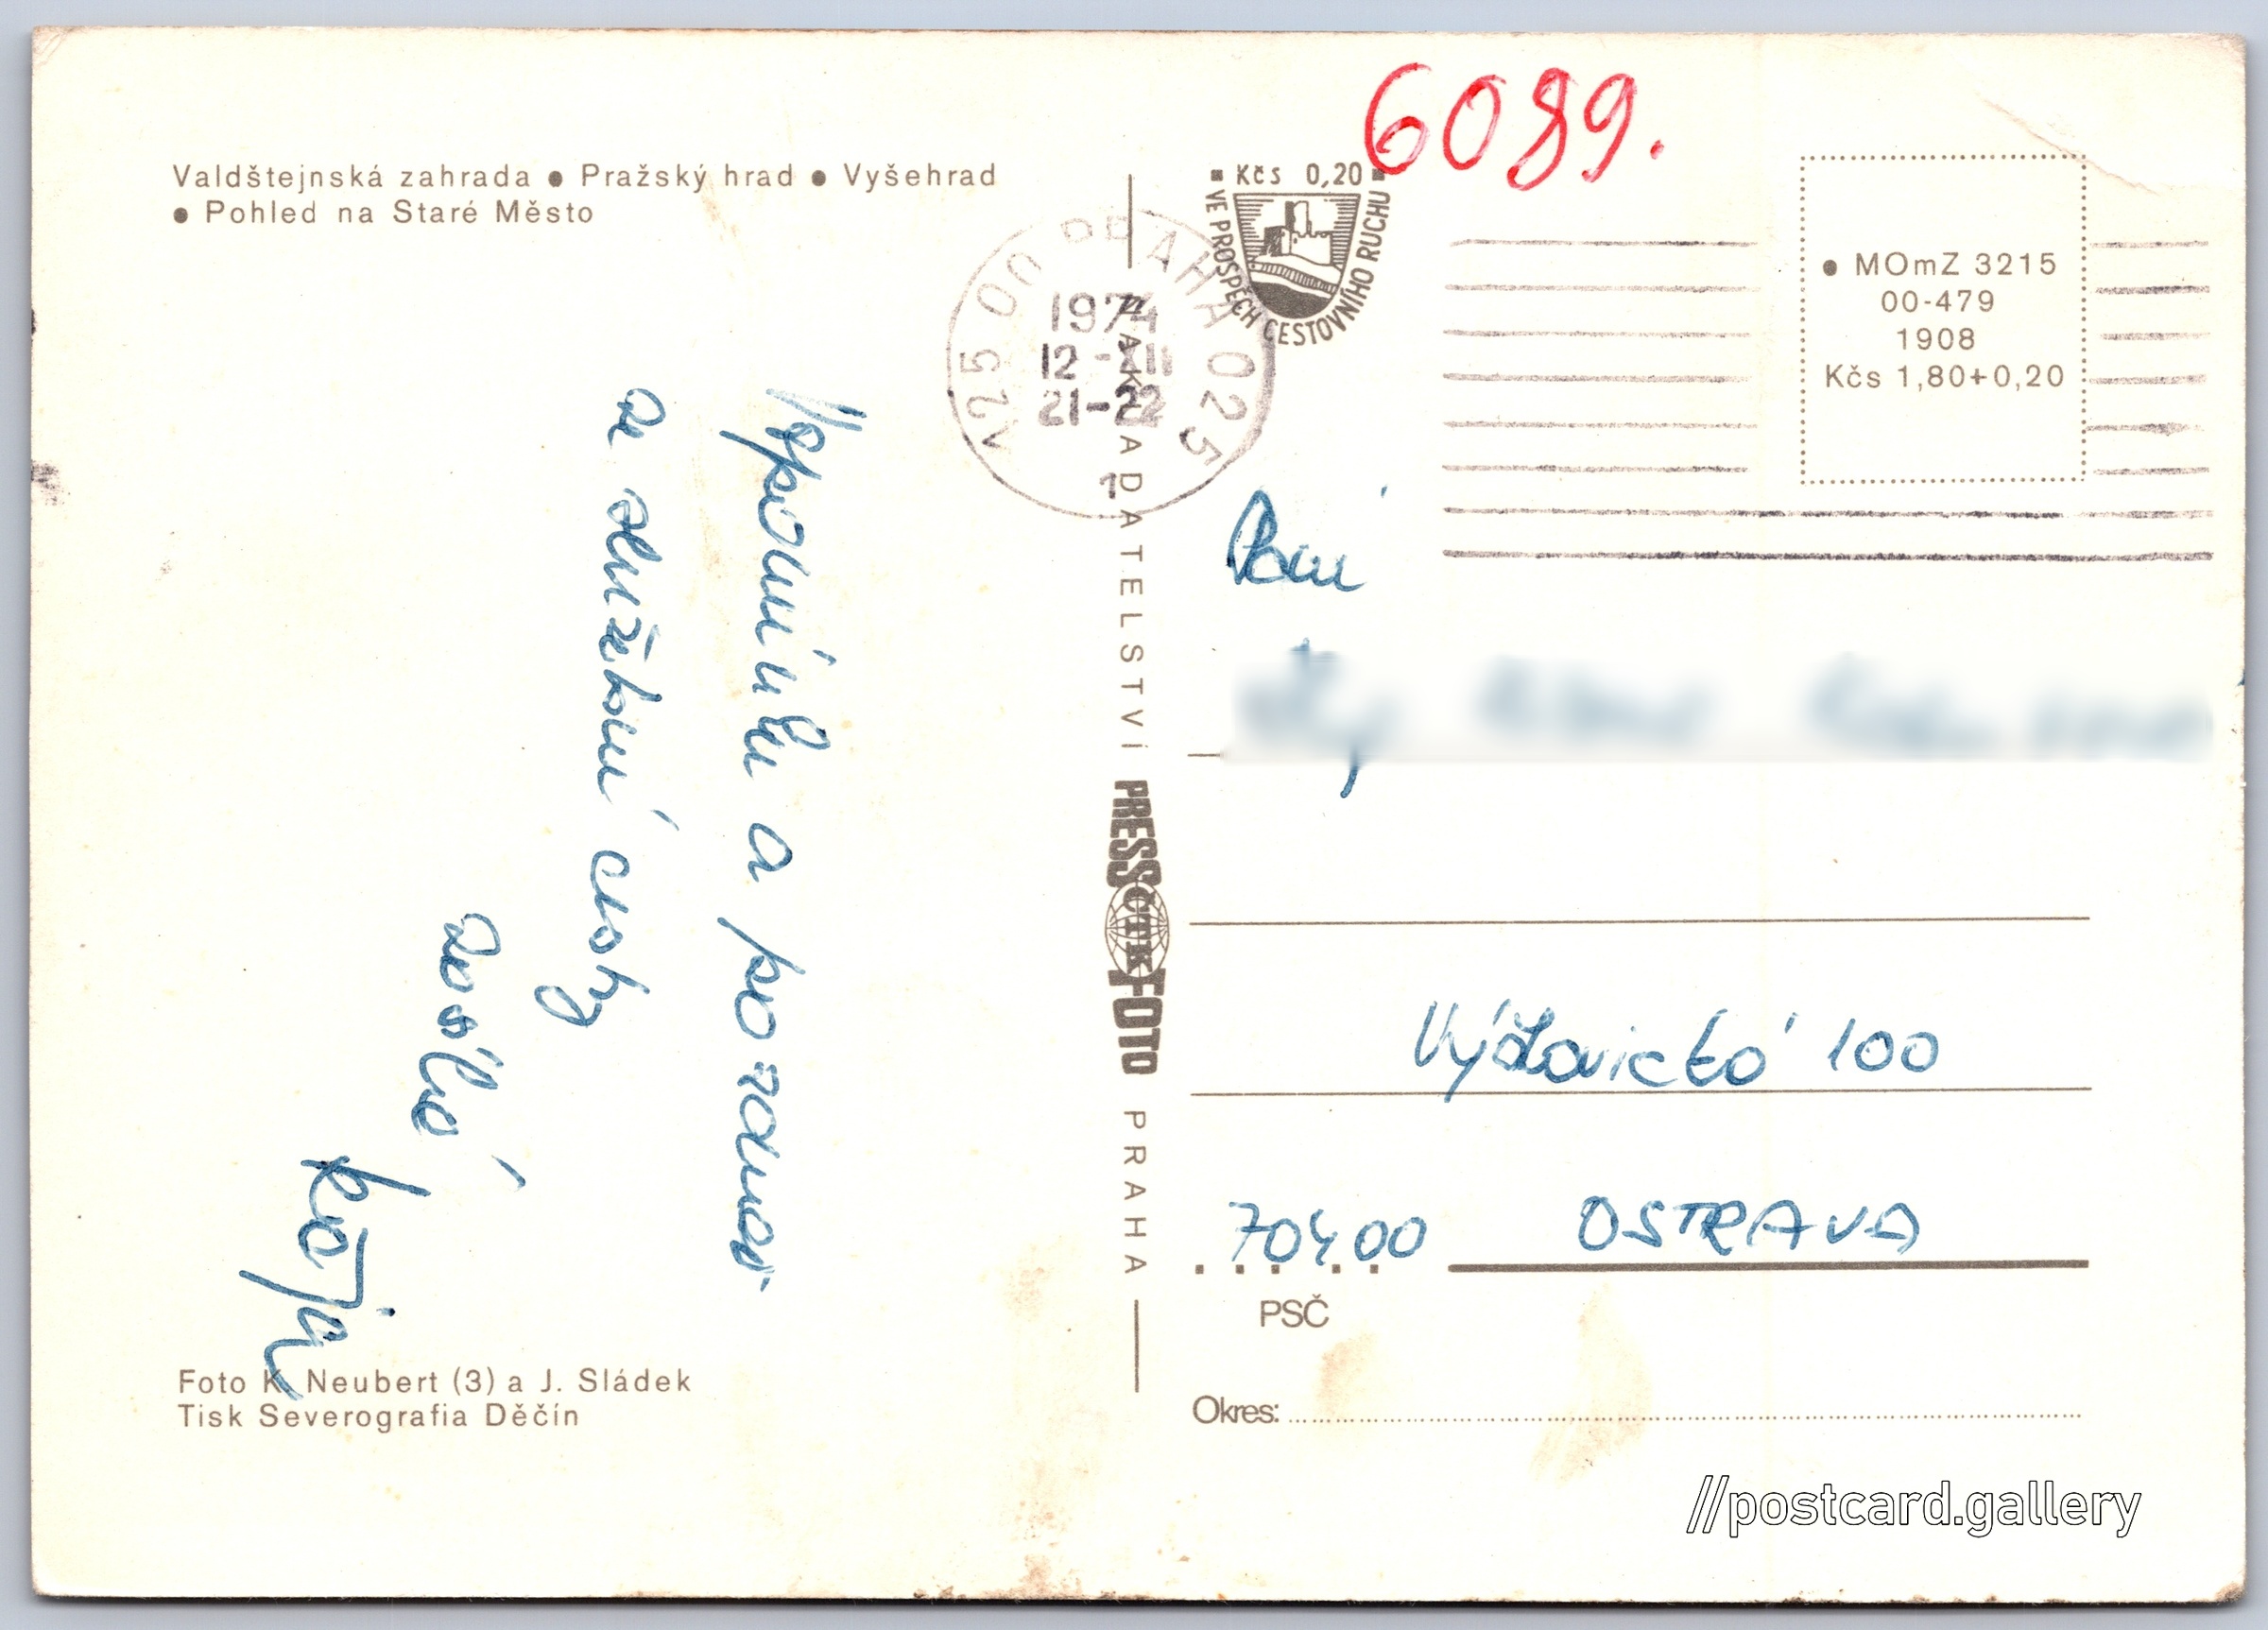 Valdštejnská zahrada ● Pražský hrad ● Vyšehrad
● Pohled na Staré Město
Vzpomínku a pozdrav
ze služební cesty
zasílá
Kája
Foto K. Neubert (3) a J. Sládek
Tisk Severografia Děčín
025 00 PRAHA 025
1974
12.-XII
21-22
1
NAKLADATELSTVÍ PRESSFOTO PRAHA
ČTK
6089.
Kčs 0,20
VE PROSPĚCH CESTOVNÍHO RUCHU
● MOmZ 3215
00-479
1908
Kčs 1,80+0,20
Paní
100
704 00 OSTRAVA
PSČ
Okres:
//postcard.gallery